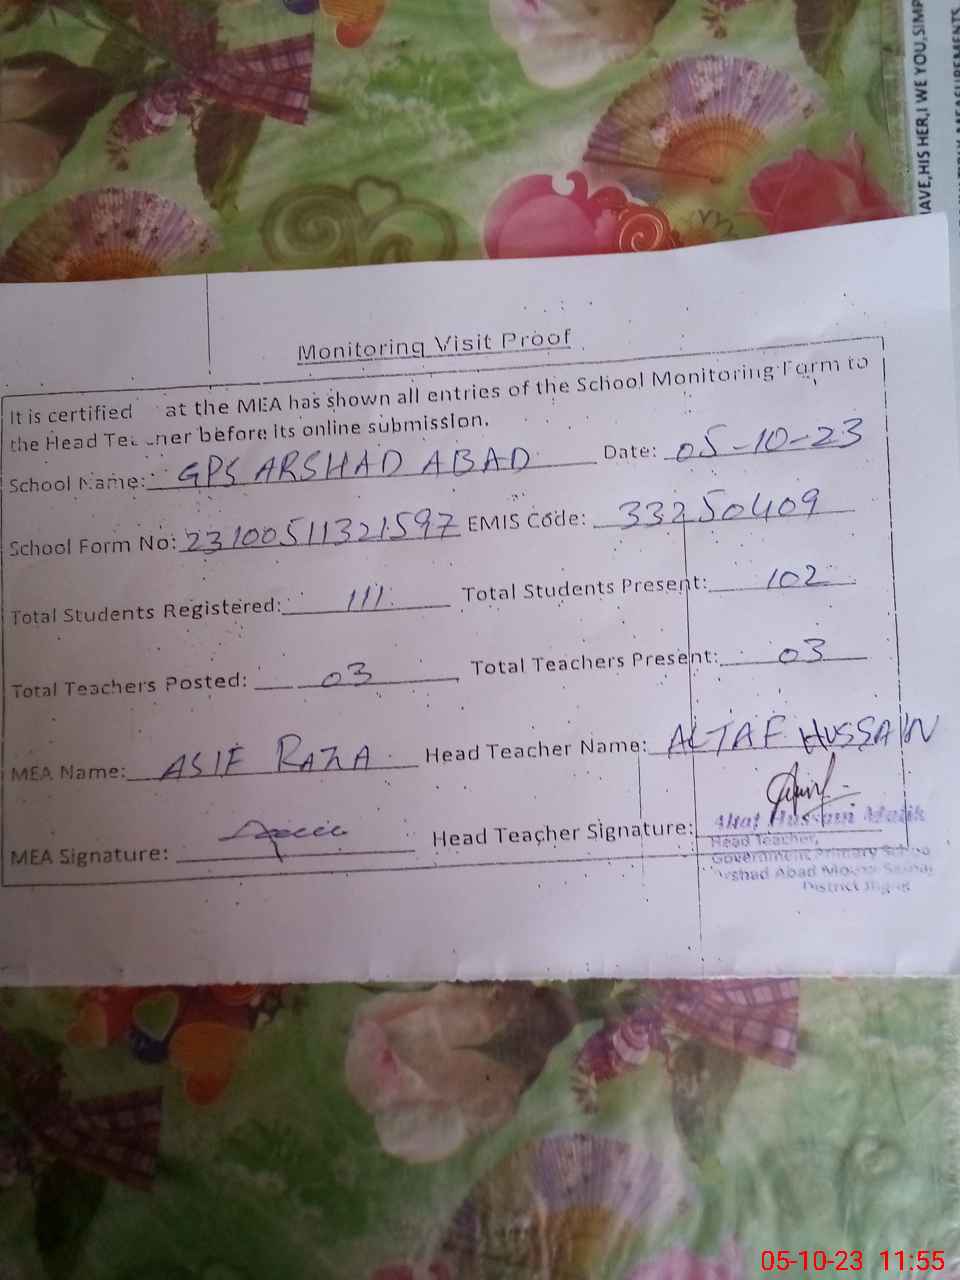 HAVE,HIS HER,I WE YOU,SIMP
MEASUREMENTS
Monitoring Visit Proof
It is certified at the MEA has shown all entries of the School Monitoring Form to
the Head Teacher before its online submission.
School Name: GPS ARSHAD ABAD Date: 05-10-23
School Form No: 23100511321597 EMIS Code: 33250409
Total Students Registered: 111 Total Students Present: 102
Total Teachers Posted: 03 Total Teachers Present: 03
MEA Name: ASIF RAZA Head Teacher Name: ALTAF HUSSAIN
MEA Signature: Head Teacher Signature:
Hussain Malik
Head Teacher,
Government Primary Schoo
Arshad Abad
District
05-10-23 11:55